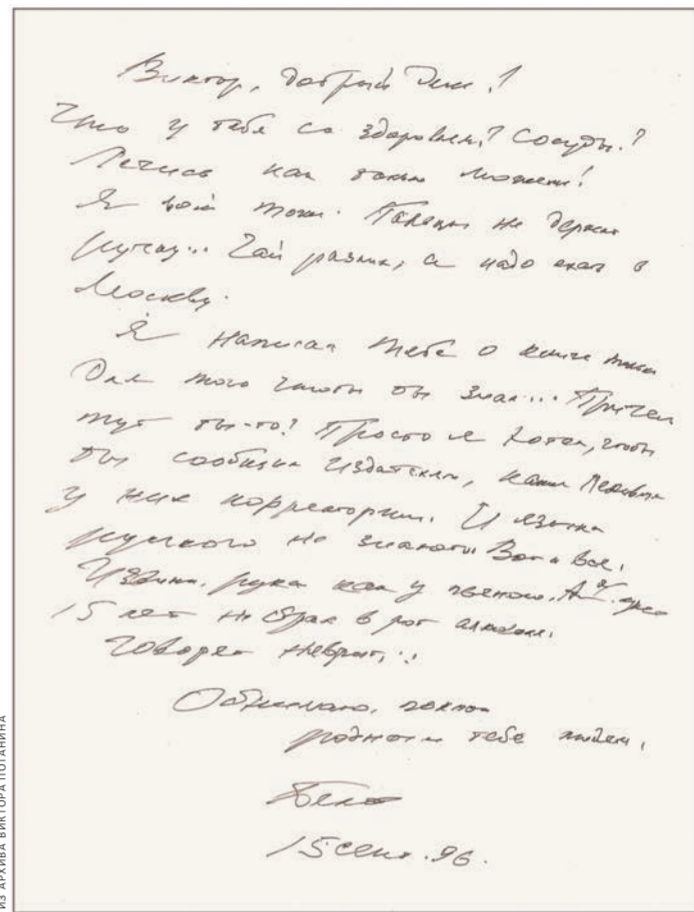 Виктор, добрый день!
Что у тебя со здоровьем? Сосуды?
Лечись как только можешь!
Я тоже. Пальцы не держат
ручку... Дай разник, а надо ехать в
Москву.
Я написал тебе о книге только
для того чтобы ты знал... Причем
тут ты-то? Просто я хотел, чтобы
ты сообщил издателям, какие
у них корректоры. И языка
русского не знают. Вот и все.
Извини, рука как у пьяного. А я уже
15 лет не брал в рот алкоголя.
Говорят неврит...
Обнимаю, поклон
родным тебе людям.
Белов
15 сент. 96.
ИЗ АРХИВА ВИКТОРА ПОТАНИНА